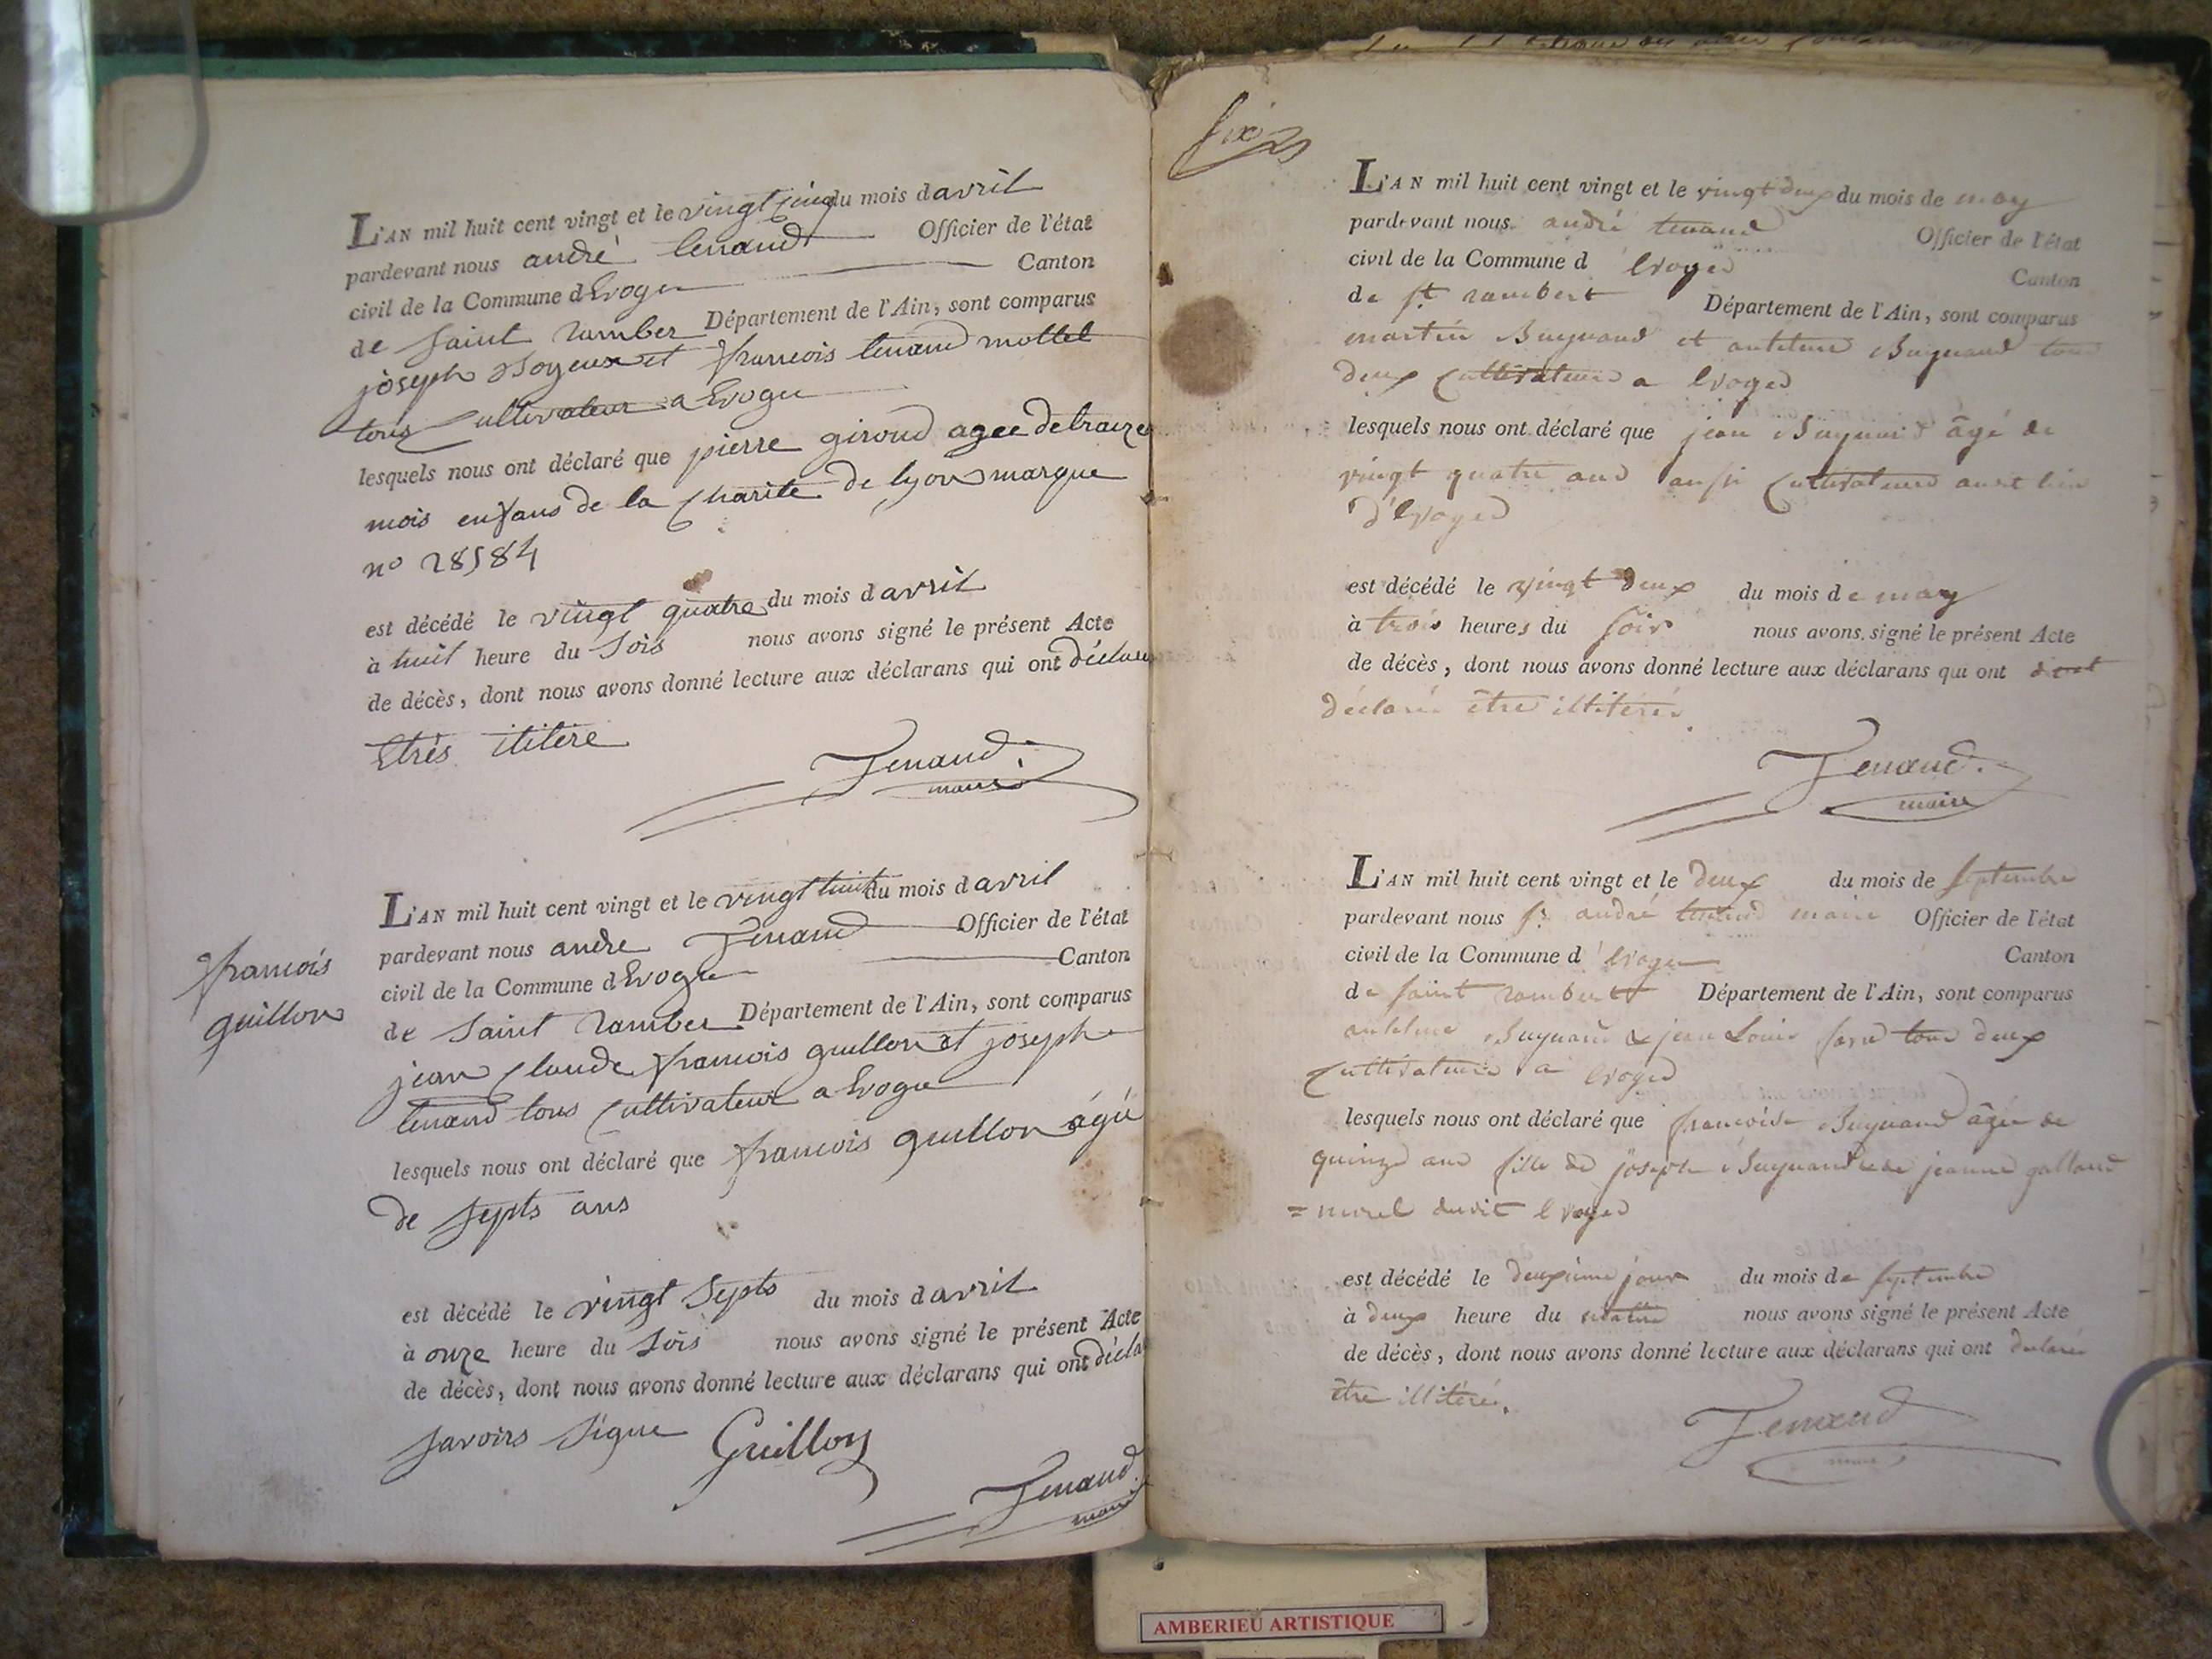 L'AN mil huit cent vingt et le vingt cinq du mois d avril
pardevant nous andré tenand Officier de l'état
civil de la Commune d Evoges Canton
de saint Ramber Département de l'Ain, sont comparus
joseph Boyeux et francois tenand mollet
tous Cultivateur a Evoges
lesquels nous ont déclaré que pierre giroud agee de traize
mois enfans de la Charite de lyon marque
no 28584
est décédé le vingt quatre du mois d avril
à huit heure du Soir nous avons signé le présent Acte
de décès, dont nous avons donné lecture aux déclarans qui ont déclare
Etrès ilitére
Tenand
maire
francois
guillon
L'AN mil huit cent vingt et le vingt huit du mois d avril
pardevant nous andre Tenand Officier de l'état
civil de la Commune d Evoges Canton
de Saint Ramber Département de l'Ain, sont comparus
jean Claude francois guillon et joseph
tenand tous Cultivateur a Evoges
lesquels nous ont déclaré que francois guillon agée
de septs ans
est décédé le vingt Septs du mois d avril
à onze heure du Soir nous avons signé le présent Acte
de décès, dont nous avons donné lecture aux déclarans qui ont décla
savoirs Signe Guillon
Tenand
maire
six
L'AN mil huit cent vingt et le vingt deux du mois de may
pardevant nous andré tenand Officier de l'état
civil de la Commune d' Evoges Canton
de st rambert Département de l'Ain, sont comparus
martin Buynand et antelme Buynand tous
deux Cultivateurs a Evoges
lesquels nous ont déclaré que jean Buynand âgé de
vingt quatre ans aussi Cultivateur audit lieu
d'Evoges
est décédé le vingt deux du mois de may
à trois heures du soir nous avons signé le présent Acte
de décès, dont nous avons donné lecture aux déclarans qui ont
déclaré être illitérés
Tenand
maire
L'AN mil huit cent vingt et le deux du mois de septembre
pardevant nous sr andré tenand maire Officier de l'état
civil de la Commune d' Evoges Canton
de saint rambert Département de l'Ain, sont comparus
antelme Buynand & jean Louis tous deux
Cultivateurs a Evoges
lesquels nous ont déclaré que francoise Buynand âgée de
quinze ans fille de joseph Buynand & de jeanne galland
= morel dudit Evoges
est décédé le deuxieme jour du mois de septembre
à deux heure du matin nous avons signé le présent Acte
de décès, dont nous avons donné lecture aux déclarans qui ont declaré
être illitérés.
Tenand
maire
AMBERIEU ARTISTIQUE